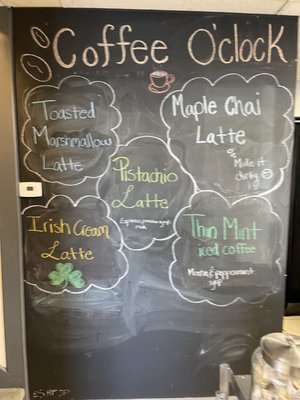 Coffee O'clock
Toasted
Marshmallow
Latte
Maple Chai
Latte
Make it
dirty
Pistachio
Latte
Irish Cream
Latte
Thin Mint
iced coffee
Mocha & peppermint